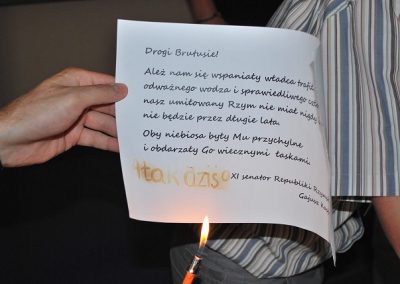 Drogi Brutusie!
Ależ nam się wspaniały władca trafił
odważnego wodza i sprawiedliwego
nasz umiłowany Rzym nie miał nigdy
nie będzie przez długie lata.
Oby niebiosa były Mu przychylne
i obdarzały Go wiecznymi łaskami.
XI senator Republiki
Gajusz
Atak dziś